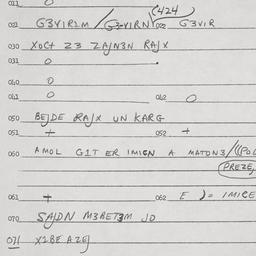 011 O
(424)
021 G3VIR1M / G3-VIRN 022 G3VIR
030 XOCT Z3 ZAJN3N RAJX
031 O
040 O
041 O 042 O
050 BEJDE RAJX UN KARG
051 + 052 +
060 AMOL G1T ER IMIGN A MATON3/
PREZE,
061 + 062 E )= IMICE
070 SAJDN M3BET3M JO
071 X1BE AZEJ